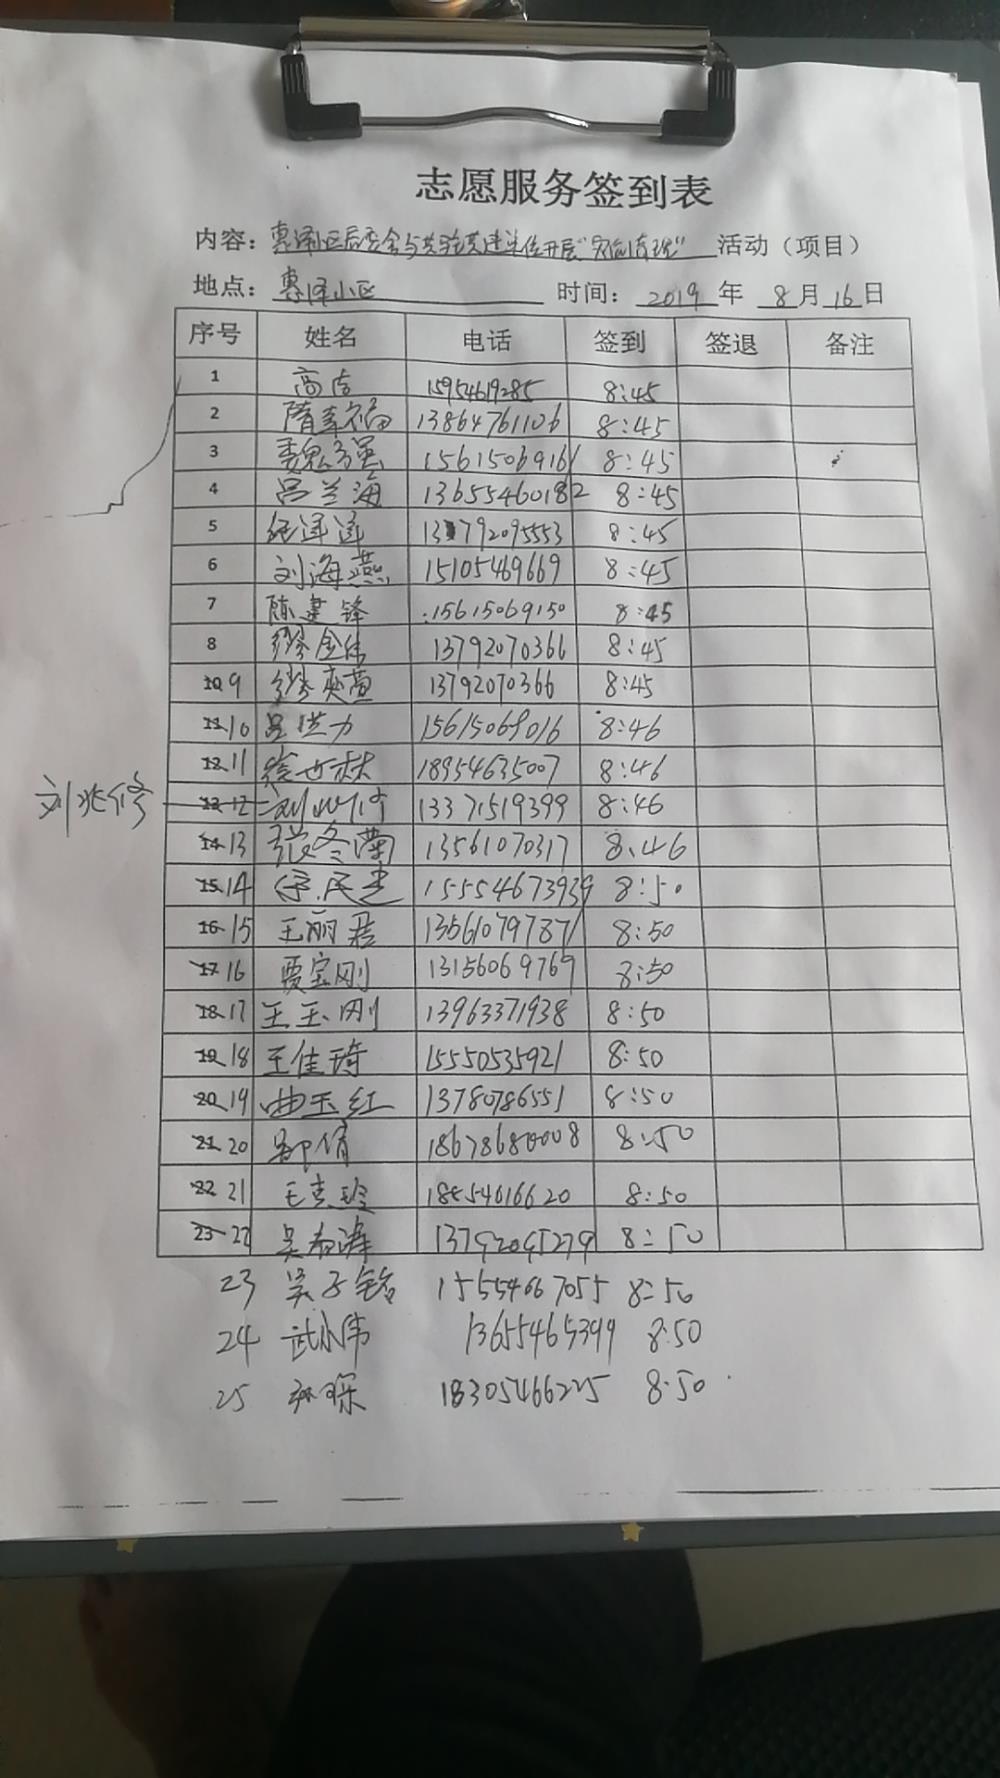 志愿服务签到表
内容：惠泽社区居委会与共驻共建单位开展" "活动（项目）
地点：惠泽小区 时间：2019年8月16日
序号 姓名 电话 签到 签退 备注
1 高吉 15954619285 8:45
2 隋幸福 13864761106 8:45
3 魏 强 15615069161 8:45
4 吕兰海 13655460182 8:45
5 纪 13792095553 8:45
6 刘海燕 15105469669 8:45
7 陈建锋 15615069150 8:45
8 缪金伟 13792070366 8:45
10 9 缪奕萱 13792070366 8:45
11 10 吕洪力 15615069016 8:46
12 11 徐世林 18954635007 8:46
刘兆修 13 12 13371519399 8:46
14 13 张冬菊 13561070317 8:46
15 14 15554673939 8:50
16 15 王丽君 13561079787 8:50
17 16 贾宝刚 13156069769 8:50
18 17 王玉刚 13963371938 8:50
19 18 王佳琦 15550535921 8:50
20 19 曲玉红 13780786551 8:50
21 20 邹倩 8:50
22 21 王克玲 18554616620 8:50
23 22 吴希涛 13792095279 8:50
23 吴子铭 15554667055 8:50
24 武小伟 13655465399 8:50
25 孙琛 18305466225 8:50